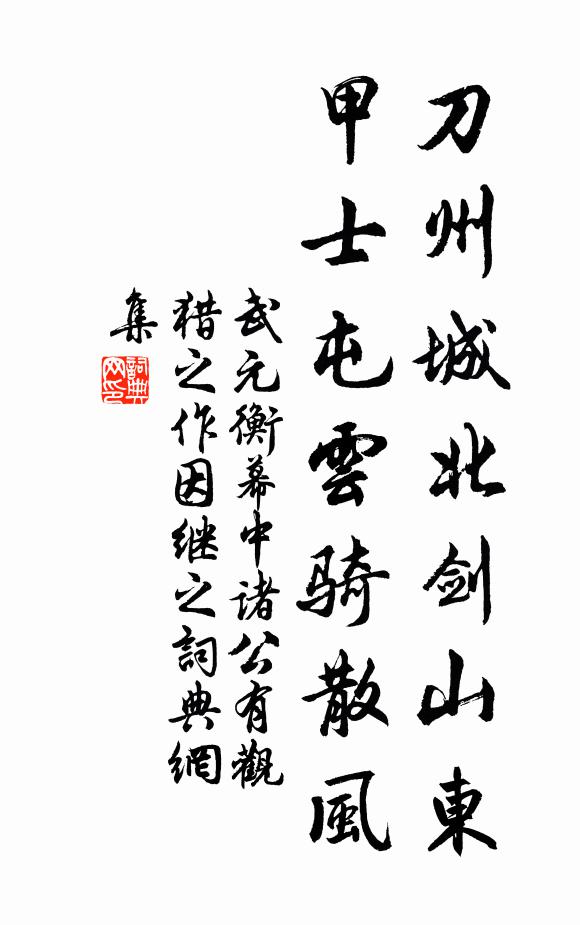 刀州城北剑山東
甲士屯雲骑散風
武元衡幕中诸公有觀
猎之作因继之詞典網
集
詞典網印